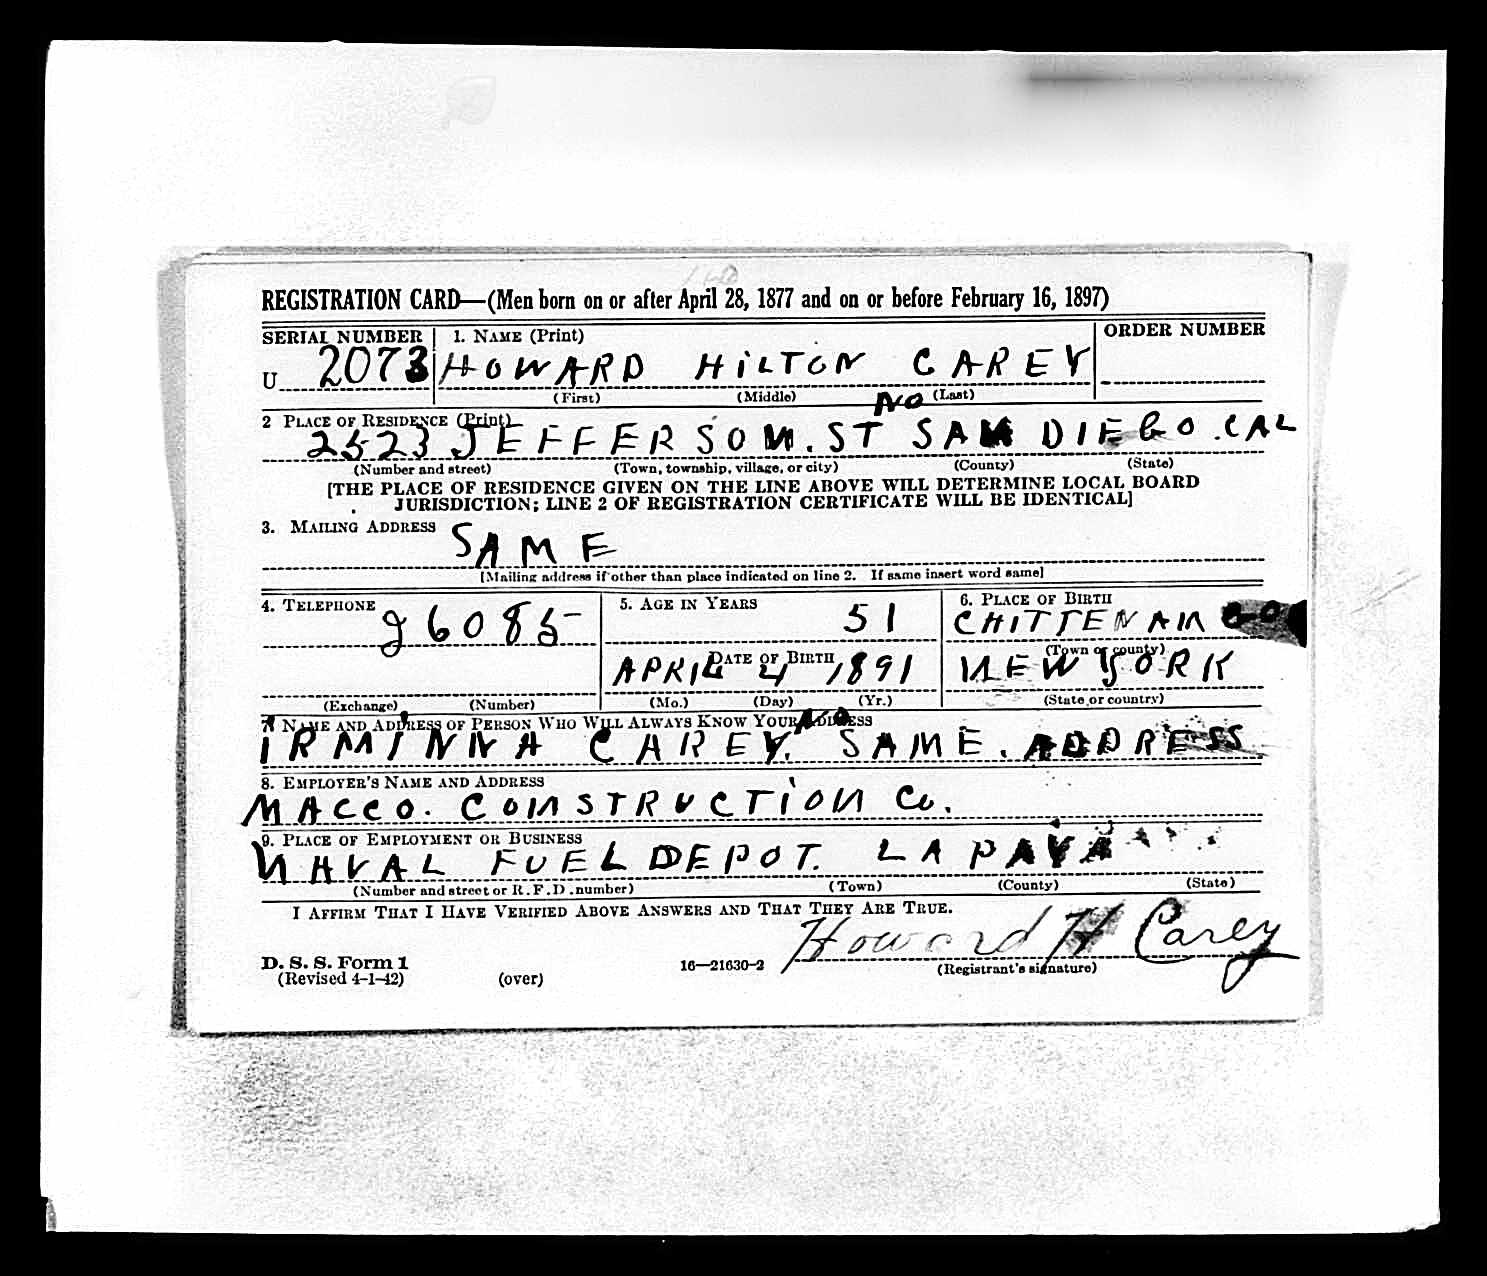 REGISTRATION CARD—(Men born on or after April 28, 1877 and on or before February 16, 1897)
SERIAL NUMBER 1. NAME (Print) ORDER NUMBER
U 2073 HOWARD HILTON CAREY
(First) (Middle) (Last)
NO
2 PLACE OF RESIDENCE (Print)
2523 JEFFERSON. ST SAN DIEGO. CAL
(Number and street) (Town, township, village, or city) (County) (State)
[THE PLACE OF RESIDENCE GIVEN ON THE LINE ABOVE WILL DETERMINE LOCAL BOARD
JURISDICTION; LINE 2 OF REGISTRATION CERTIFICATE WILL BE IDENTICAL]
3. MAILING ADDRESS
SAME
[Mailing address if other than place indicated on line 2. If same insert word same]
4. TELEPHONE 5. AGE IN YEARS 6. PLACE OF BIRTH
26085 51 CHITTENAN
DATE OF BIRTH (Town or county)
APRIL 4 1891 NEW YORK
(Exchange) (Number) (Mo.) (Day) (Yr.) (State or country)
7. NAME AND ADDRESS OF PERSON WHO WILL ALWAYS KNOW YOUR ADDRESS
IRMINNA CAREY. SAME. ADDRESS
8. EMPLOYER'S NAME AND ADDRESS
MACCO. CONSTRUCTION Co.
9. PLACE OF EMPLOYMENT OR BUSINESS
NAVAL FUEL DEPOT. LA PAYA
(Number and street or R. F. D. number) (Town) (County) (State)
I AFFIRM THAT I HAVE VERIFIED ABOVE ANSWERS AND THAT THEY ARE TRUE.
Howard H Carey
D. S. S. Form 1
(Revised 4-1-42) (over) 16—21630-2 (Registrant's signature)